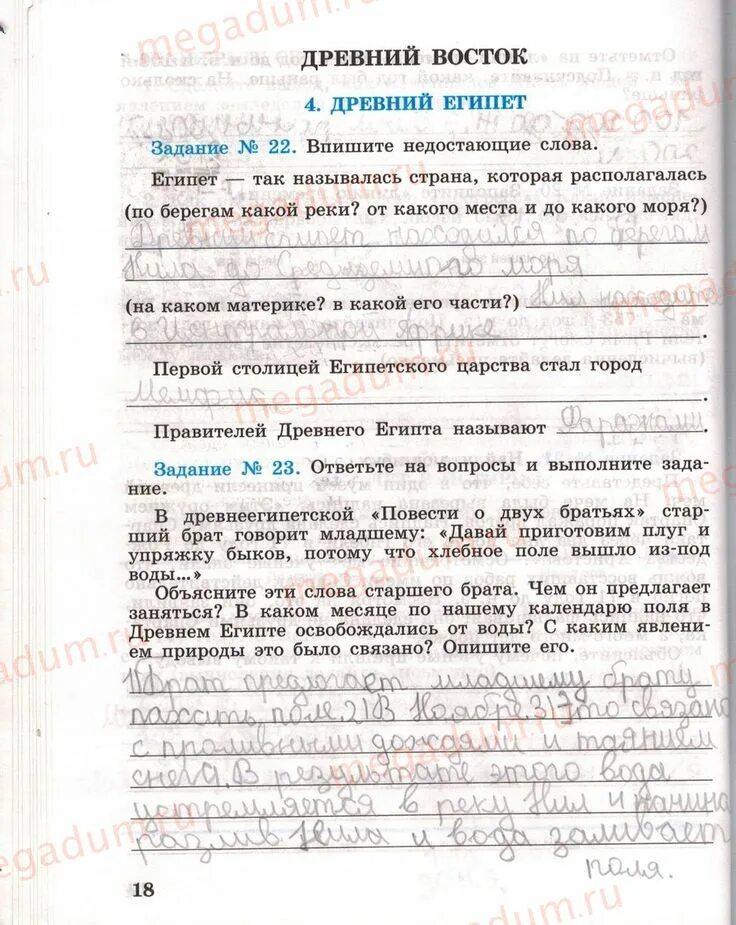 ДРЕВНИЙ ВОСТОК
4. ДРЕВНИЙ ЕГИПЕТ
Задание № 22. Впишите недостающие слова.
Египет — так называлась страна, которая располагалась
(по берегам какой реки? от какого места и до какого моря?)
Древний египет находился по берегам
Нила до Средиземного моря
(на каком материке? в какой его части?) Нил находит
в центральной Африке.
Первой столицей Египетского царства стал город
Мемфис.
Правителей Древнего Египта называют Фараонами.
Задание № 23. Ответьте на вопросы и выполните зада-
ние.
В древнеегипетской «Повести о двух братьях» стар-
ший брат говорит младшему: «Давай приготовим плуг и
упряжку быков, потому что хлебное поле вышло из-под
воды...»
Объясните эти слова старшего брата. Чем он предлагает
заняться? В каком месяце по нашему календарю поля в
Древнем Египте освобождались от воды? С каким явлени-
ем природы это было связано? Опишите его.
1) Брат предлогает младшему брату
пахать поле 2) В Ноябре 3) Это связано
с проливными дождями и таянием
снега. В результате этого вода
устремляется в реку Нил и начина
разлив Нила и вода заливает
поля.
18
megadum.ru
megadum.ru
megadum.ru
megadum.ru
megadum.ru
megadum.ru
megadum.ru